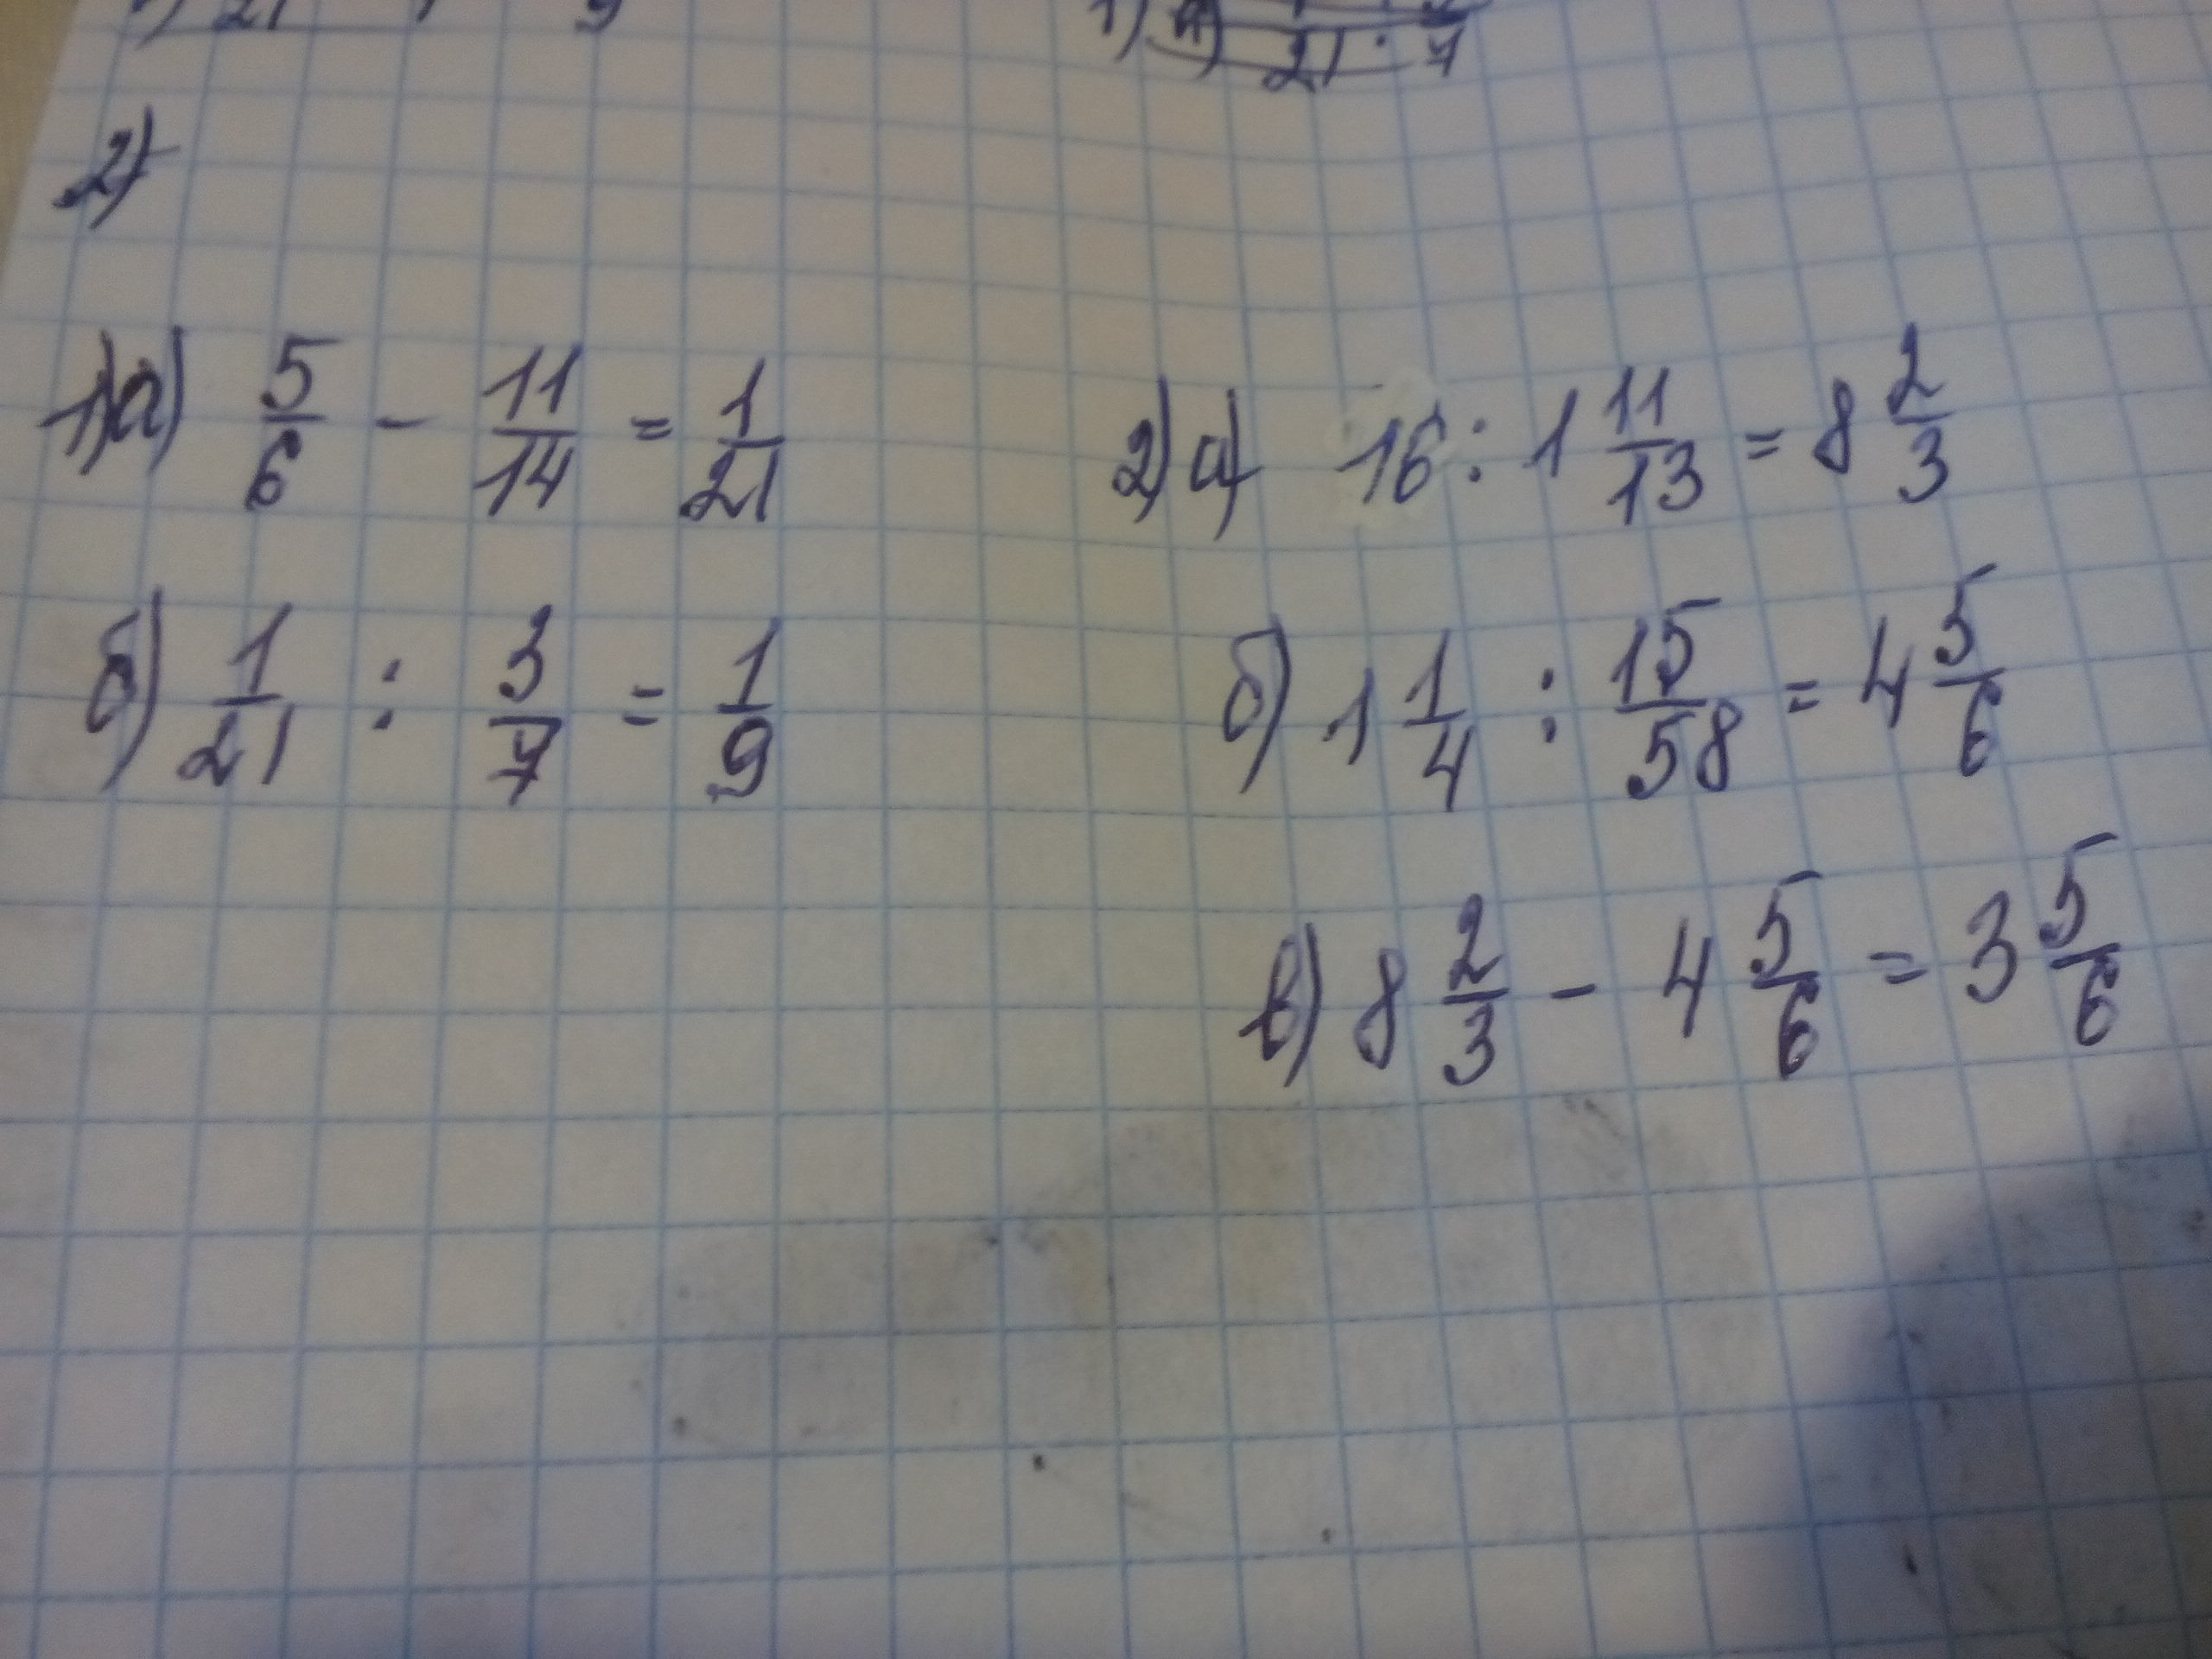 2)
1)а) 5/6 - 11/14 = 1/21
б) 1/21 : 3/7 = 1/9
2)а) 16 : 1 11/13 = 8 2/3
б) 1 1/4 : 15/58 = 4 5/6
в) 8 2/3 - 4 5/6 = 3 5/6